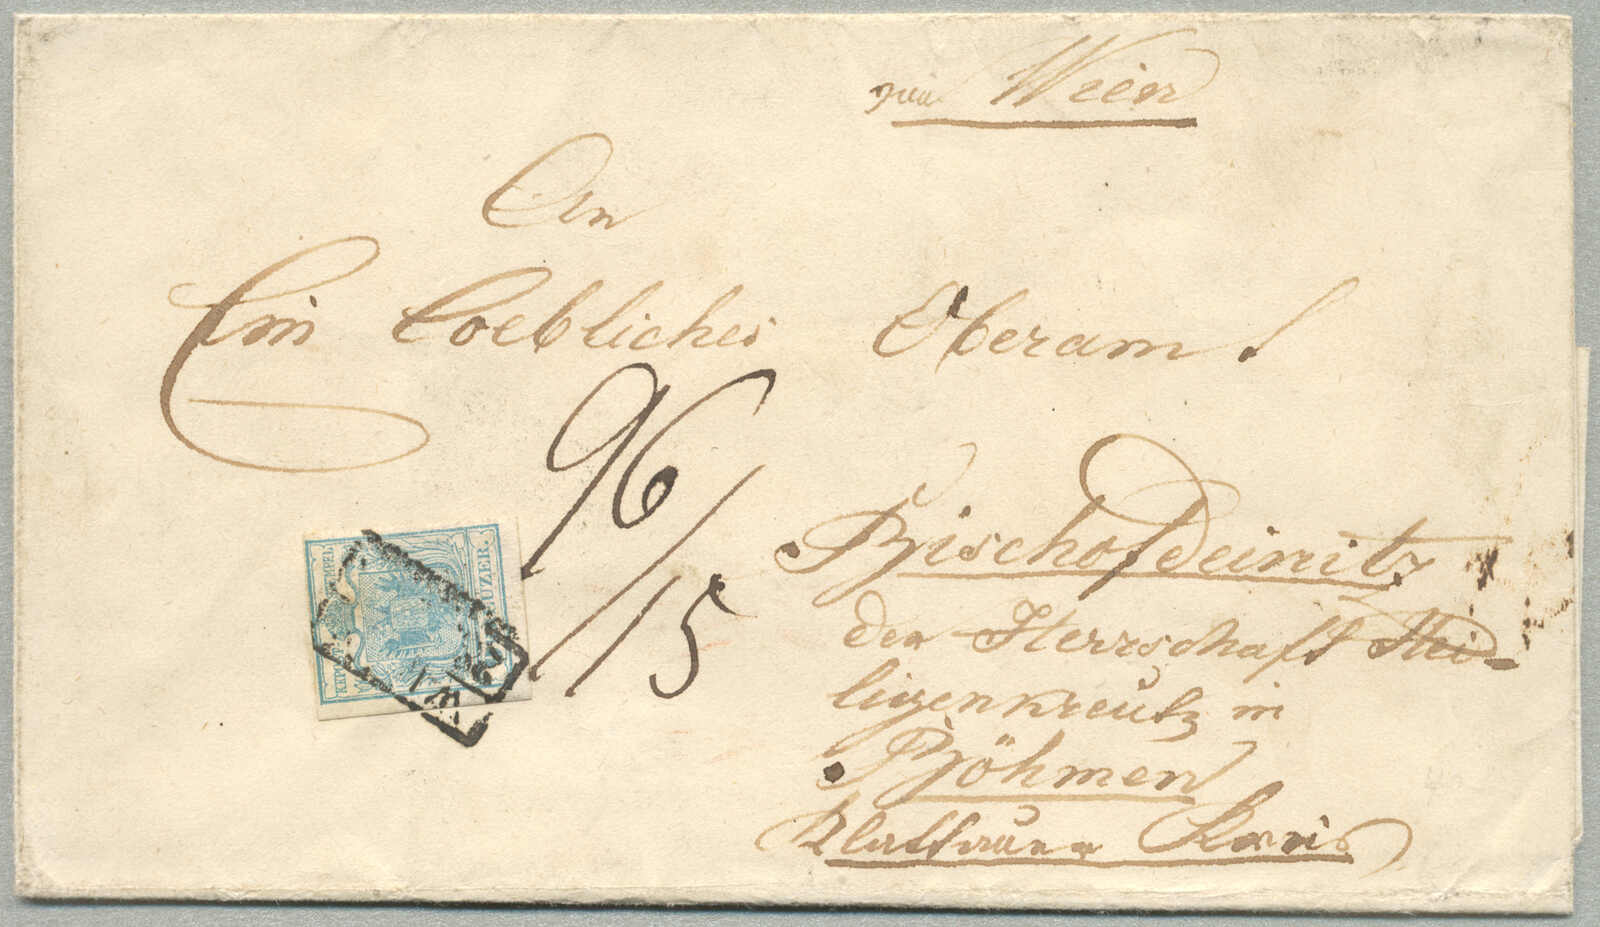 Wien
An
Ein Loebliches Oberamt
96/15
KREUZER.
Bischofdeinitz
der Herrschaft Hei-
ligenkreutz in
Böhmen
Klattauer Kreis